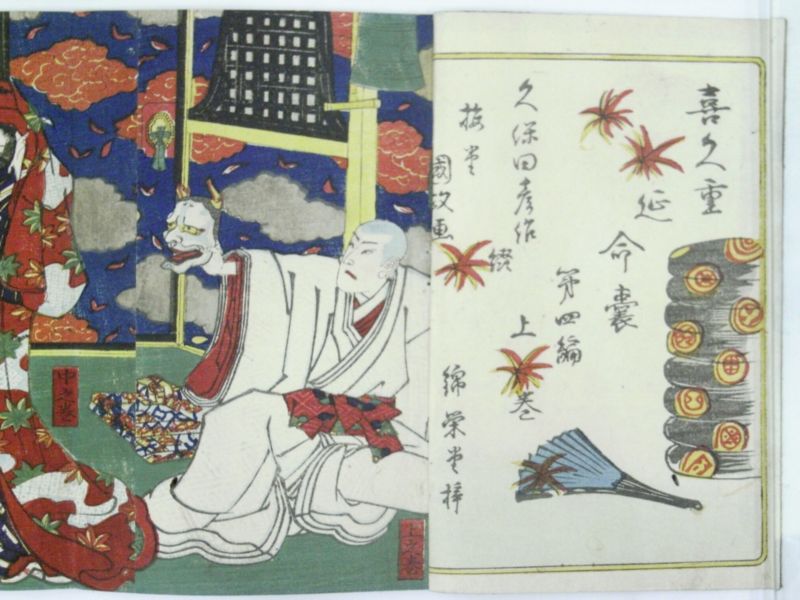 喜久重
延命嚢
第四編
上之巻
久保田彦作綴
梅堂國政画
錦栄堂梓
上之巻
中之巻